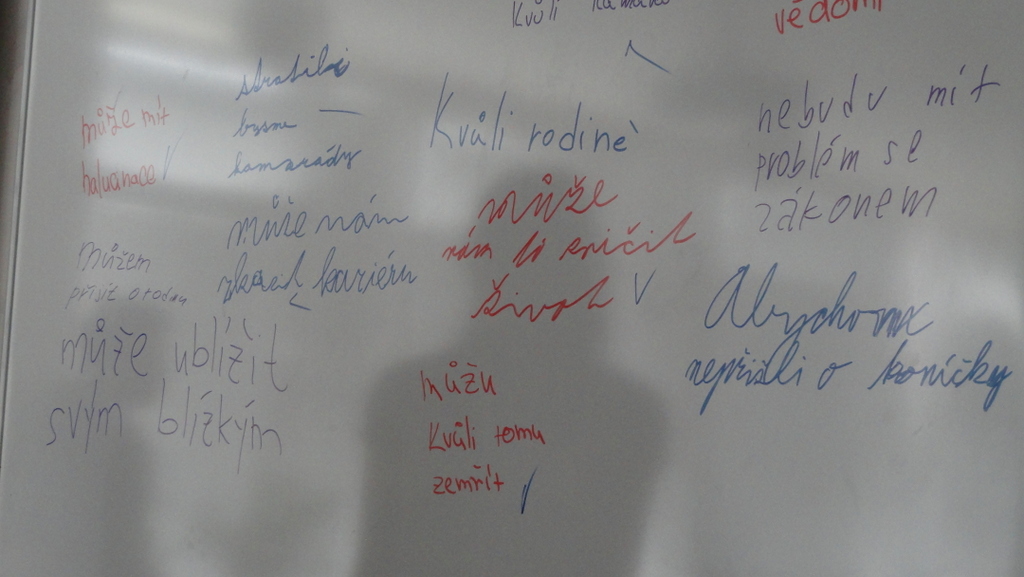 Kvůli
vědomí
může mít
halucinace
stratili
bysme
kamarády
Kvůli rodině
nebudu mít
problém se
zákonem
může nám
zkazit kariéru
může
nám to zničit
život
můžem
přijít o rodinu
může ublížit
svým blízkým
můžu
Kvůli tomu
zemřít
Abychome
nepřišli o koníčky